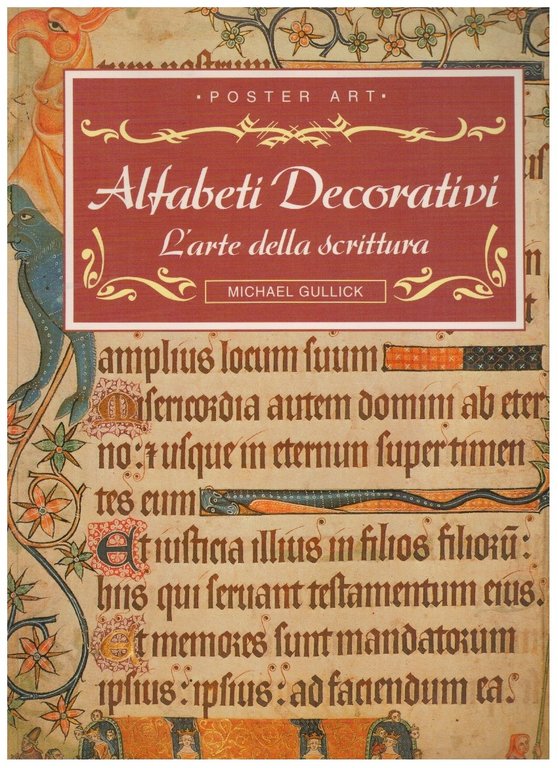 tum nostrum
· POSTER ART ·
Alfabeti Decorativi
L'arte della scrittura
MICHAEL GULLICK
amplius locum suum
Misericordia autem domini ab eter
no: ⁊ usque in eternum super timen
tes eum
Et iusticia illius in filios filioru᷑:
hiis qui seruant testamentum eius.
Et memores sunt mandatorum
ipsius: ipsius: ad faciendum ea.